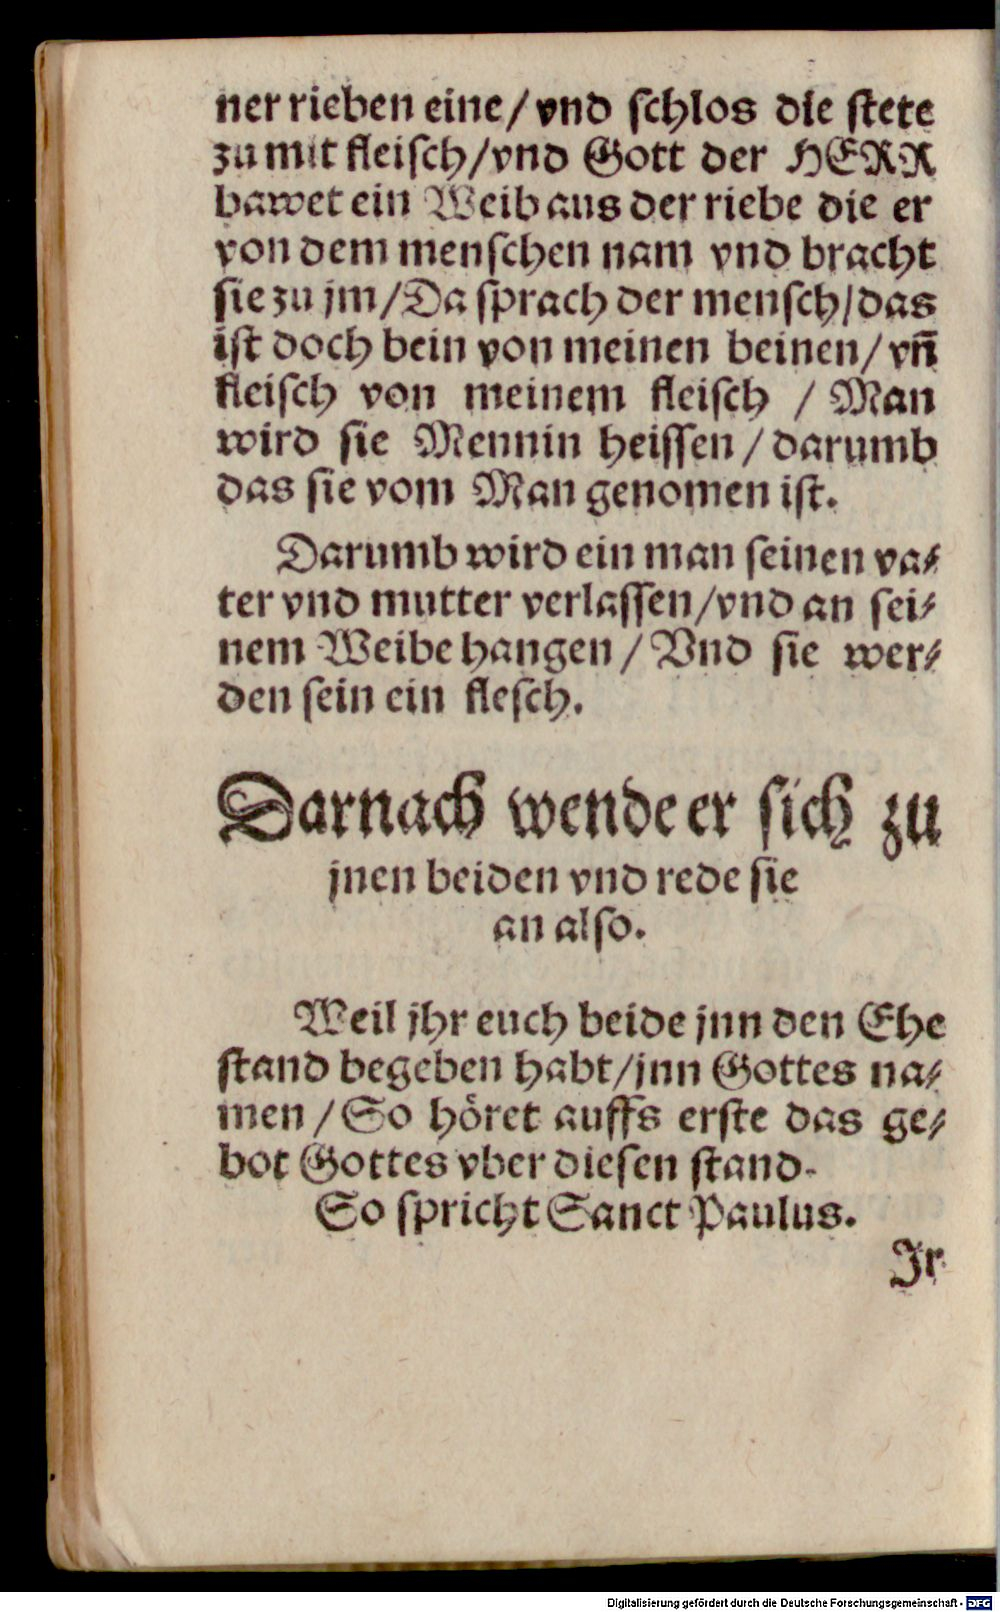 ner rieben eine / vnd schlos die stete
zu mit fleisch / vnd Gott der HERR
bawet ein Weib aus der riebe die er
von dem menschen nam vnd bracht
sie zu jm / Da sprach der mensch / das
ist doch bein von meinen beinen / vn̄
fleisch von meinem fleisch / Man
wird sie Mennin heissen / darumb
das sie vom Man genomen ist.
Darumb wird ein man seinen va⸗
ter vnd mutter verlassen / vnd an sei⸗
nem Weibe hangen / Vnd sie wer⸗
den sein ein flesch.
Darnach wende er sich zu
jnen beiden vnd rede sie
an also.
Weil jhr euch beide jnn den Ehe
stand begeben habt / jnn Gottes na⸗
men / So höret auffs erste das ge⸗
bot Gottes vber diesen stand.
So spricht Sanct Paulus.
Jr
Digitalisierung gefördert durch die Deutsche Forschungsgemeinschaft - DFG